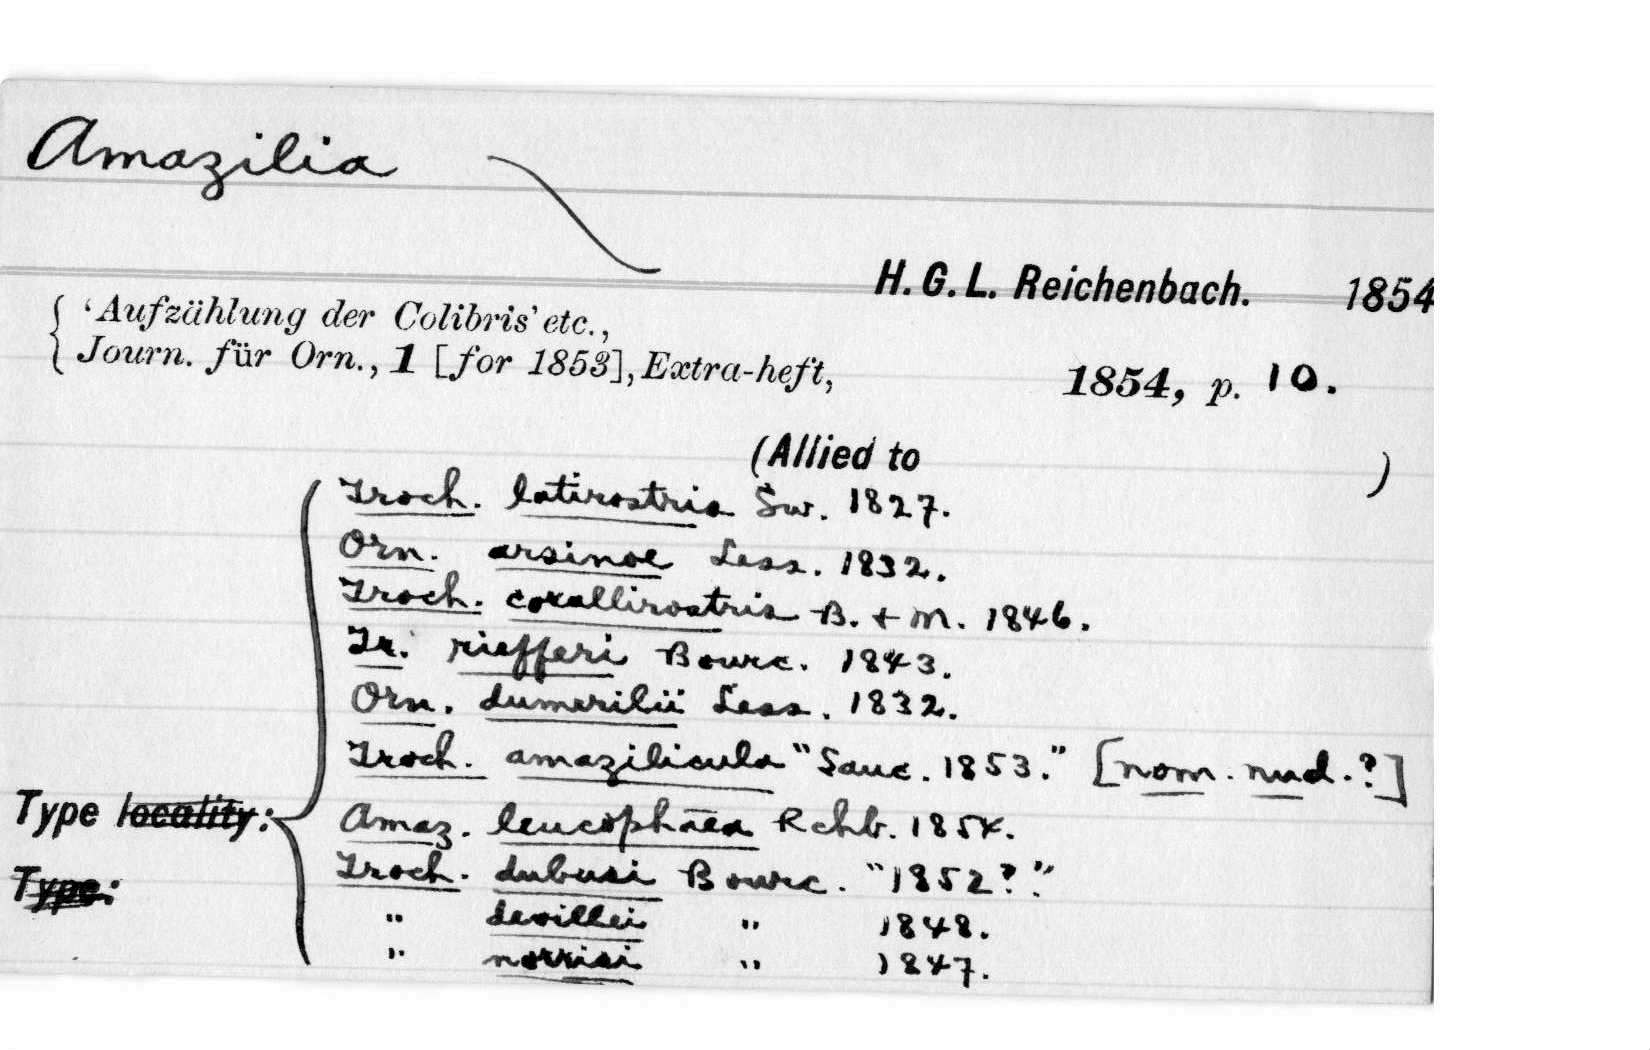 Amazilia
H. G. L. Reichenbach. 1854
'Aufzählung der Colibris' etc.,
Journ. für Orn., 1 [for 1853], Extra-heft, 1854, p. 10.
(Allied to )
Troch. latirostris Sw. 1827.
Orn. arsinoe Less. 1832.
Troch. corallirostris B. + M. 1846.
Tr. riefferi Bourc. 1843.
Orn. dumerilii Less. 1832.
Troch. amazilicula "Sauc. 1853." [nom. nud.?]
Type locality:
Amaz. leucophaea Rchb. 1854.
Troch. dubusi Bourc. "1852?"
Type:
" devillei " 1848.
" norrisi " 1847.